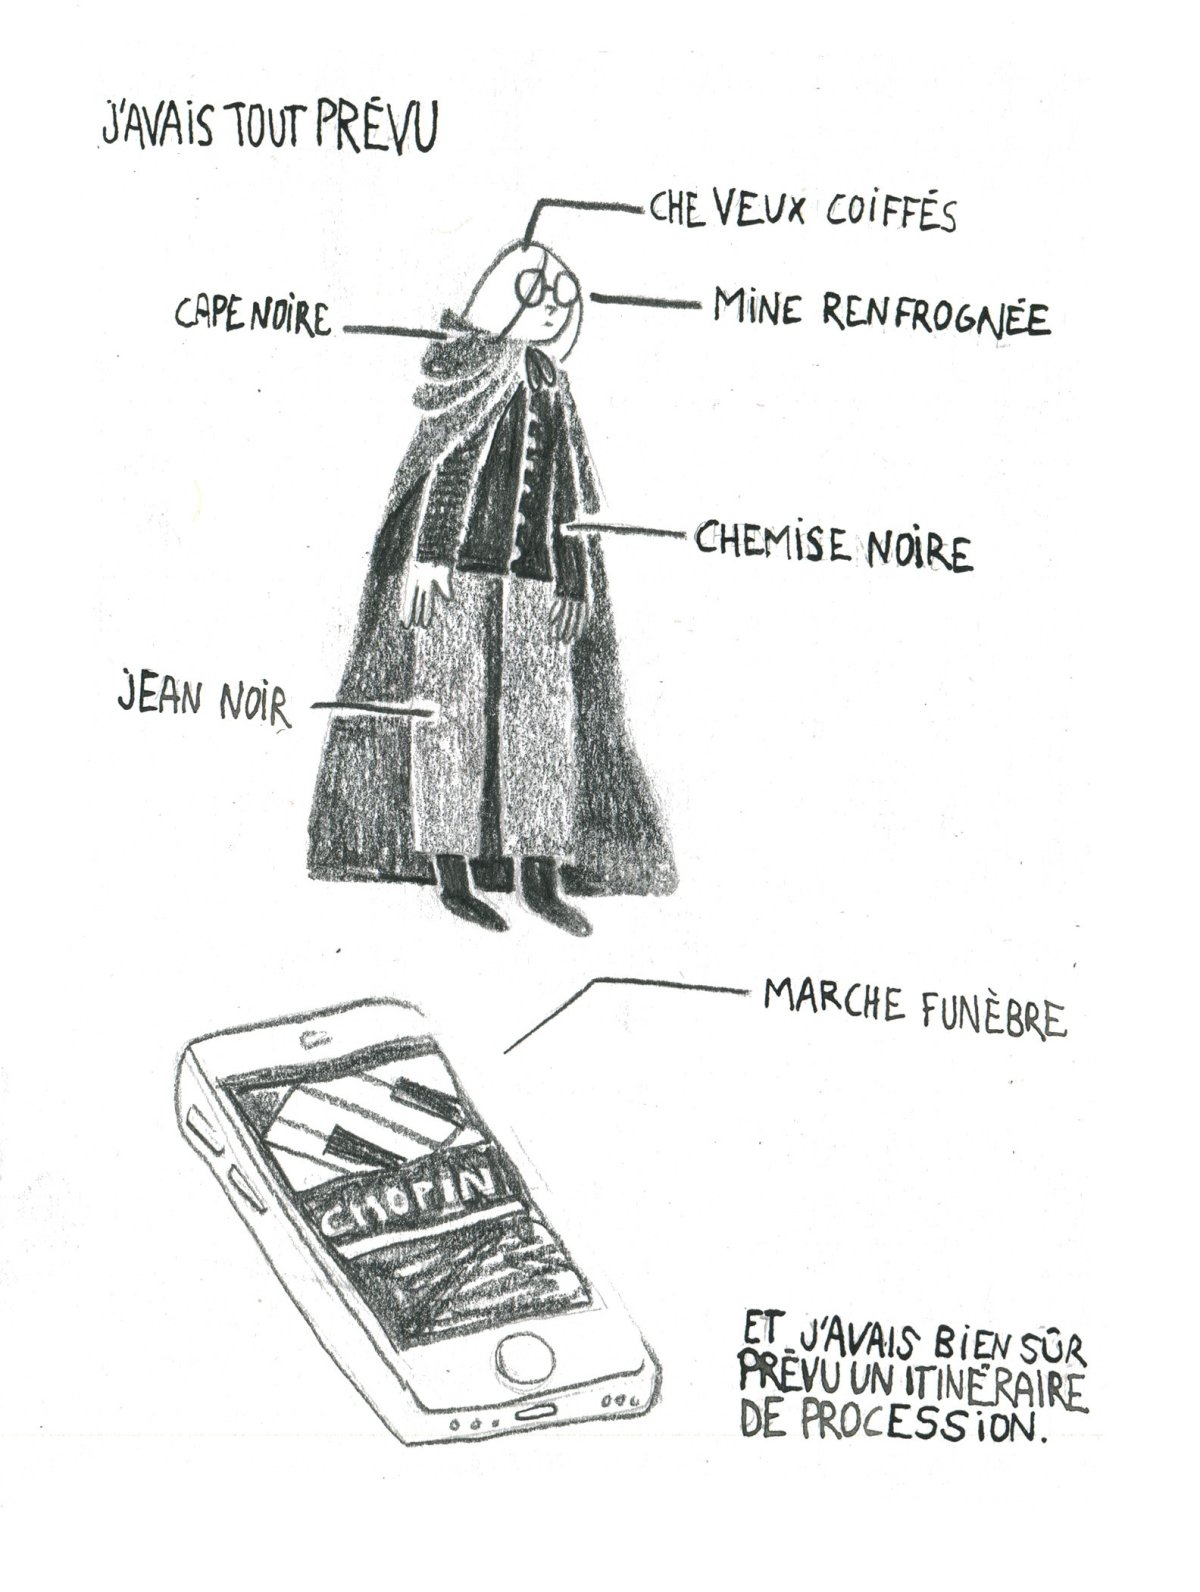 J'AVAIS TOUT PRÉVU
CHEVEUX COIFFÉS
CAPE NOIRE
MINE RENFROGNÉE
CHEMISE NOIRE
JEAN NOIR
MARCHE FUNÈBRE
CHOPIN
ET J'AVAIS BIEN SÛR
PRÉVU UN ITINÉRAIRE
DE PROCESSION.